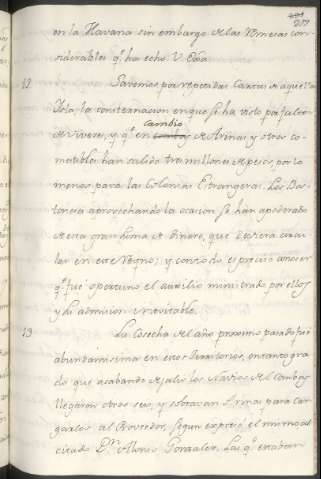 en la Havana sin embargo de las remesas con-
siderables q.e ha echo V. Exa.
12 Savemos por repetidas Cartas de aquella
Isla la consternacion en que se ha visto por falta
de Viveres, y q.e en cambio de Arinas y otros co-
mestibles han salido tres millones de pesos, por lo
menos para las Colonias Estrangeras. Los Bos-
toneses aprovechando la ocasion se han apoderado
de esta gran suma de dinero, que deviera circu-
lar en este Reyno; y con todo es preciso conocer
q.e fué oportuno el auxilio ministrado por ellos
y su admision inevitable.
13 La Cosecha del año proximo pasado fué
abundantisima en estos territorios, en tanto gra-
do que acabando de salir los Navios del Comboy
llegaron otros seis, y sobravan Arinas para car-
garlos al Proveedor, segun expresó el mismo
citado D.n Alonso Gonzalez. Las q.e estavan